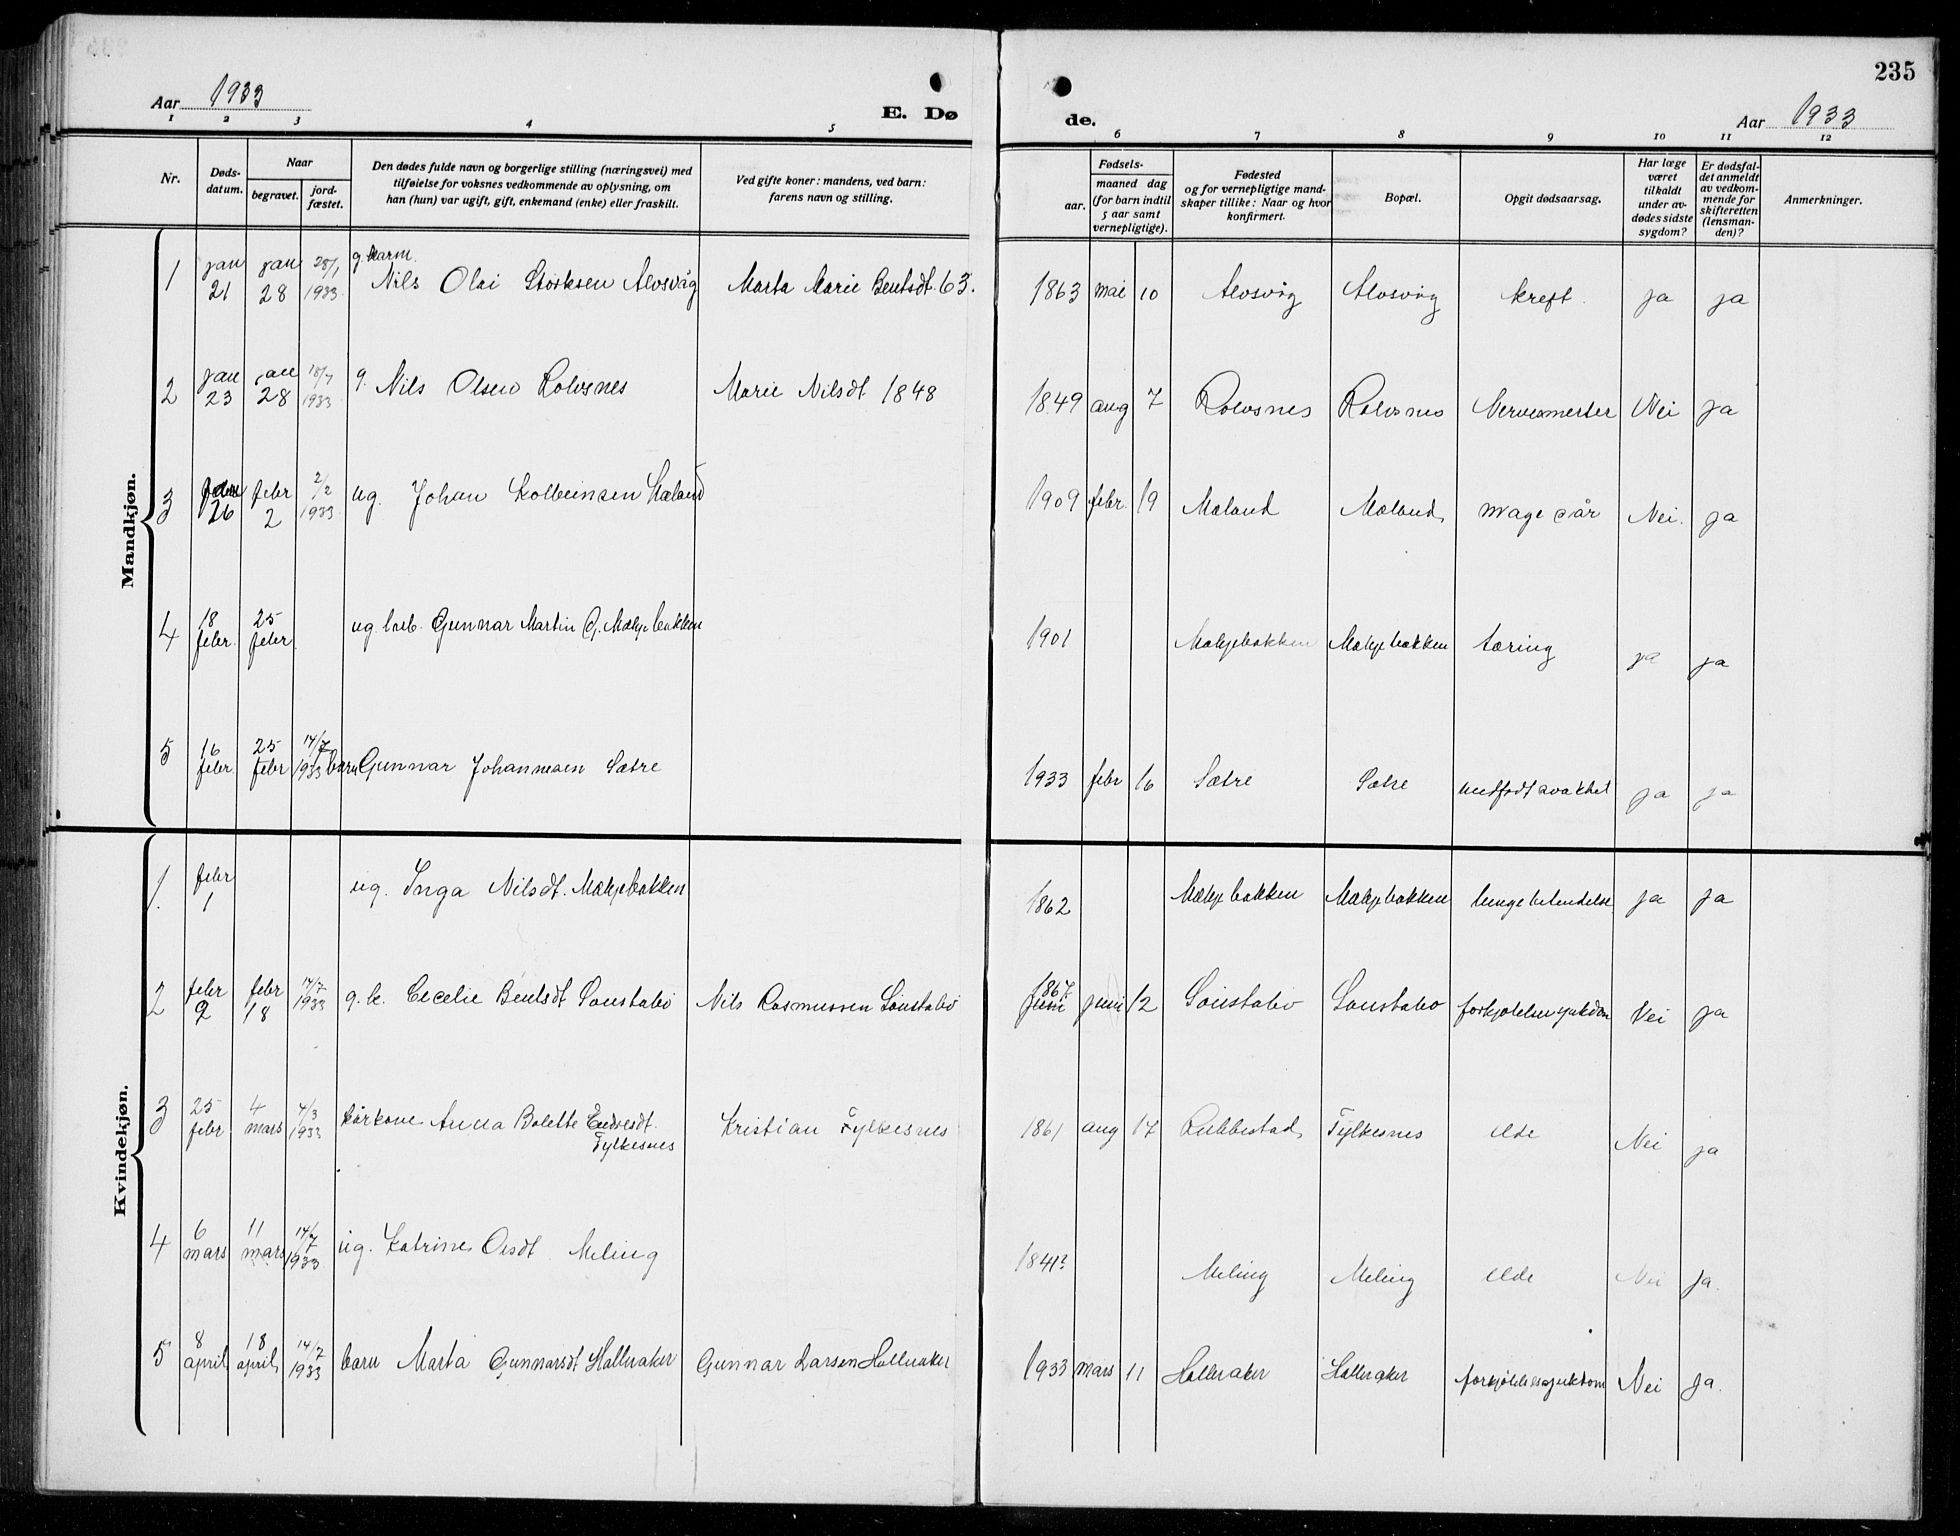 235
Aar 1933
E. Dø
de.
Aar 1933
1 2 3 4 5 6 7 8 9 10 11 12
Nr.
Døds-
datum.
Naar
begravet.
jord-
fæstet.
Den dødes fulde navn og borgerlige stilling (næringsvei) med
tilføielse for voksnes vedkommende av oplysning, om
han (hun) var ugift, gift, enkemand (enke) eller fraskilt.
Ved gifte koner: mandens, ved barn:
farens navn og stilling.
Fødsels-
aar.
maaned dag
(for barn indtil
5 aar samt
vernepligtige).
Fødested
og for vernepligtige mand-
skaper tillike: Naar og hvor
konfirmert.
Bopæl.
Opgit dødsaarsag.
Har læge
været
tilkaldt
under av-
dødes sidste
sygdom?
Er dødsfal-
det anmeldt
av vedkom-
mende for
skifteretten
(lensman-
den)?
Anmerkninger.
Mandkjøn.
1 jan 21 jan 28 28/1 1933 g. karm. Nils Olai Storksen Alvsvåg Marta Marie Bentsdt. 63. 1863 mai 10 Alvsvåg Alvsvåg kreft. ja ja
2 jan 23 jan 28 1933 g. Nils Olsen Rolvsnes Marie Nilsdt 1848 1849 aug 7 Rolvsnes Rolvsnes Nervesmerter Nei ja
3 26 febr 2 2/2 1933 ug. Johan Kolbeinsen Mæland 1909 febr. 19 Mæland Mæland mage sår Nei. ja
4 18 febr. 25 febr. ug. Gunnar Martin G. Mækjebakken 1901 Mækjebakken Mækjebakken tæring ja ja
5 16 febr. 25 febr 14/7 1933 barn Gunnar Johannesen Sætre 1933 febr 16 Sætre Sætre medfødt svakhet ja ja
Kvindekjøn.
1. febr 1 ug. Inga Nilsdt. Mækjebakken 1862 Mækjebakken Mækjebakken lungebetendelse ja ja
2 febr 9 febr 18 14/7 1933 g.k. Cecelie Bentsdt Sønstabø Nils Rasmussen Sønstabø 1867 juni 12 Sønstabø Sønstabø forkjølelsessjukdom Nei ja
3 25 febr 4 mars 4/3 1933 kårkone Anna Bolette Endresdt. Fylkesnes Kristian Fylkesnes 1861 aug 17 Rubbestad Fylkesnes elde Nei ja
4 6 mars 11 mars 14/7 1933 ug. Katrine Olsdt. Meling 1841? Meling Meling elde Nei ja.
5 8 april 18 april 14/7 1933 barn Marta Gunnarsdt Halleraker Gunnar Larsen Halleraker 1933 mars 11 Halleraker Halleraker forkjølelsessjukdom Nei ja.